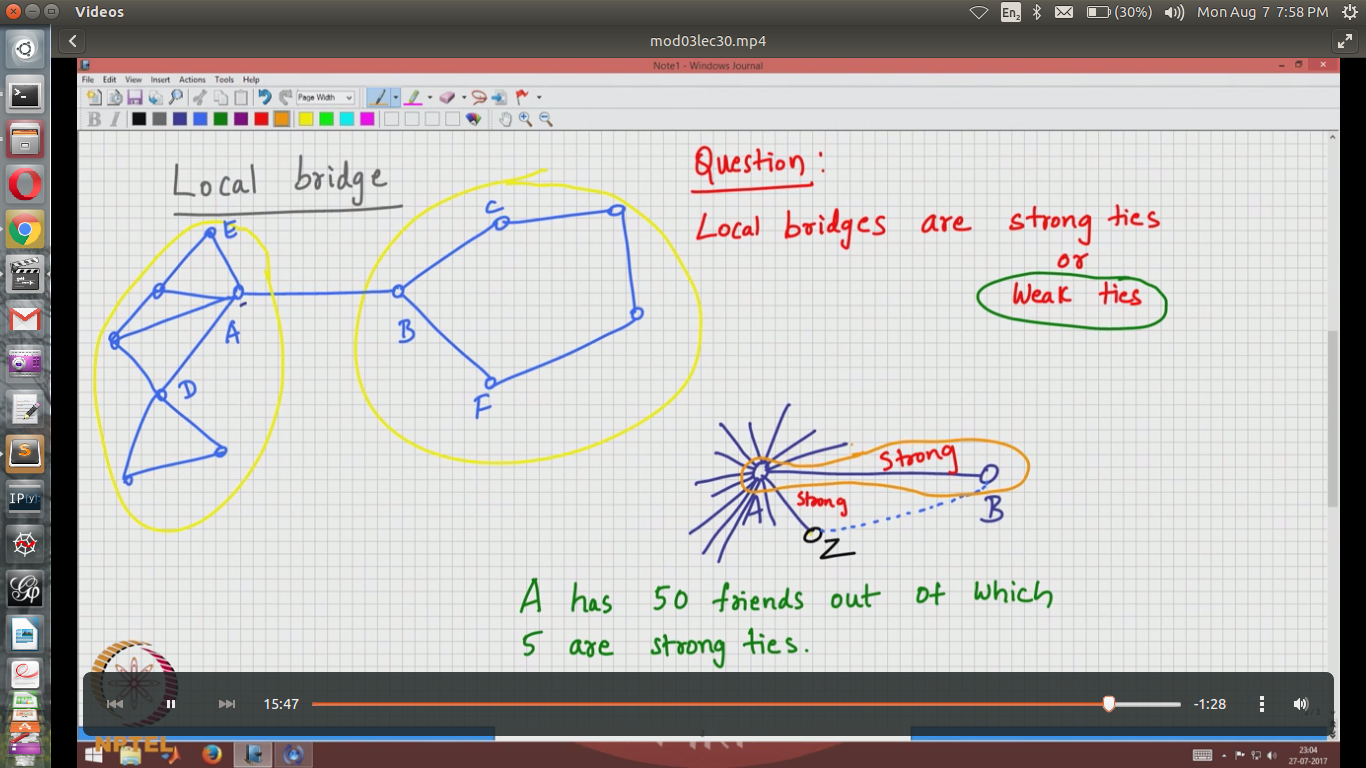 Videos
En2
(30%)
Mon Aug 7 7:58 PM
mod03lec30.mp4
Note1 - Windows Journal
File Edit View Insert Actions Tools Help
Page Width
B I
Local bridge
E
A
D
B
C
F
Question:
Local bridges are strong ties
or
Weak ties
Strong
Strong
A
B
Z
A has 50 friends out of which
5 are strong ties.
15:47
-1:28
NPTEL
23:04
27-07-2017
IP[y]: